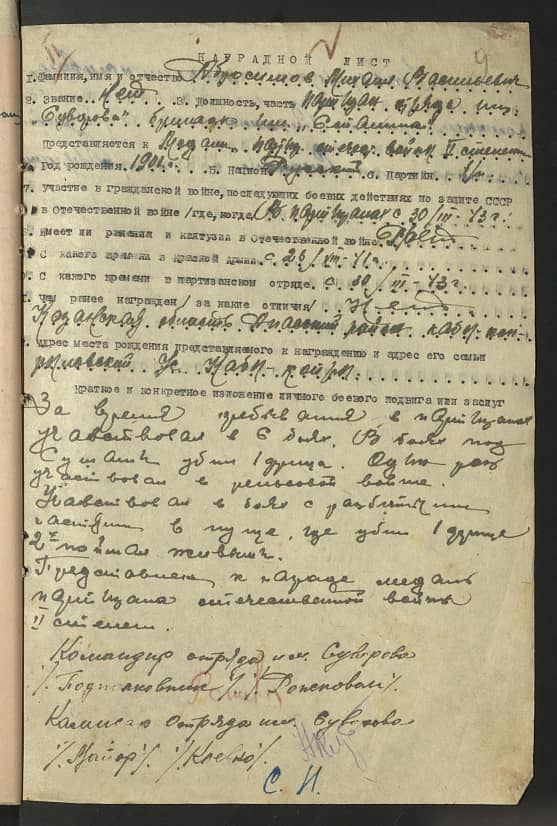 9
НАГРАДНОЙ ЛИСТ
1. Фамилия, имя и отчество Абросимов Михаил Васильевич
2. Звание Нет 3. Должность, часть партизан отряда им.
"Суворова" бригады им. "Сталина"
Представляется к Медали парт. отеч. войны II степени
Год рождения 1901 г. 5. Национ Русский 6. Партийн.
7. участие в Гражданской войне, последующих боевых действиях по защите СССР
в Отечественной войне /где, когда/ В партизанах с 30/III-43 г.
имеет ли ранения и контузии в Отечественной войне
С какого времени в Красной Армии с 26/ -41 г.
С какого времени в партизанском отряде с 30/III-43 г.
Чем ранее награжден /за какие отличия/ Нет
Казанская область район
адрес места рождения представляемого к награждению и адрес его семьи
Краткое и конкретное изложение личного боевого подвига или заслуг
За время пребывания в партизанах
участвовал в 6 боях. В боях под
убил 1 фрица. Один раз
участвовал в рельсовой войне.
Участвовал в боях с разбитыми
частями в пуще, где убил 1 фрица
2х поймал живьем.
Представлен к награде медаль
партизана отечественной войны
II степени.
Командир отряда им. Суворова
/Подполковник/
Комиссар отряда им. Суворова
/Майор/ /Клевко/